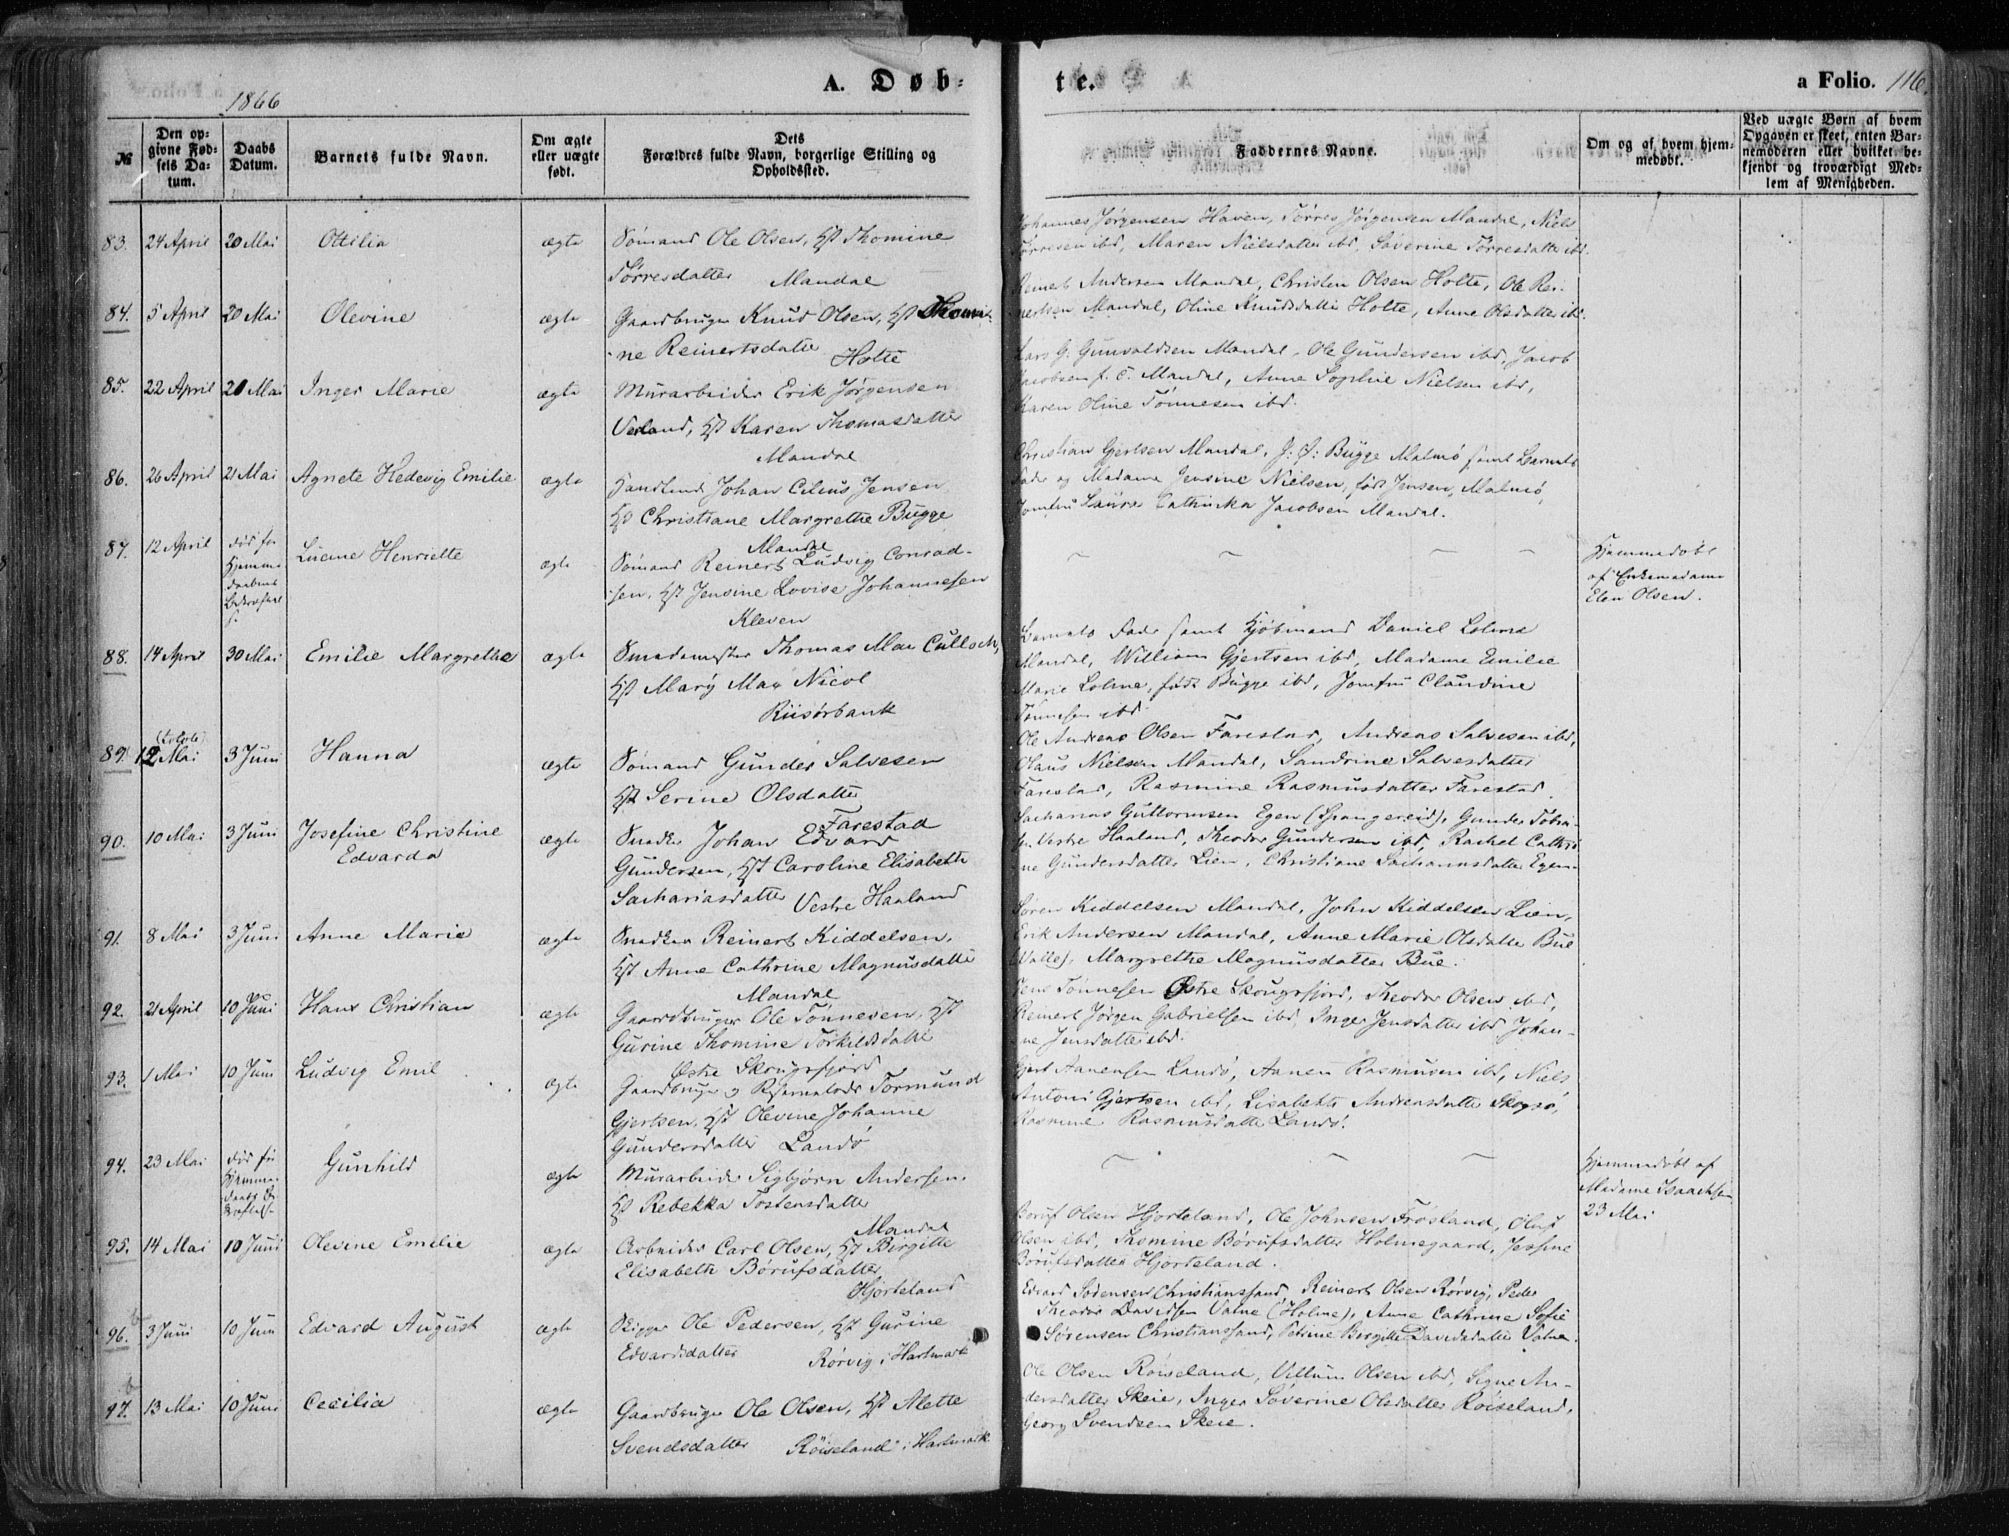 A. Døb-
te.
a Folio. 116.
1866
№
Den op-
givne Fød-
sels Da-
tum.
Daabs
Datum.
Barnets fulde Navn.
Om ægte
eller uægte
født.
Dets
Forældres fulde Navn, borgerlige Stilling og
Opholdssted.
Faddernes Navne.
Om og af hvem hjem-
medøbt.
Ved uægte Børn af hvem
Opgaven er skeet, enten Bar-
nemoderen eller hvilket be-
kjendt og troværdigt Med-
lem af Menigheden.
83. 24 April 20 Mai Ottilia ægte Sømand Ole Olsen, Hst Thomine
Tørresdatter Mandal
Johannes Jørgensen Haven, Tørres Jørgensen Mandal, Niels
Tørresen ibd, Maren Nielsdatter ibd, Severine Tørresdatter ibd.
84. 5 April 20 Mai Olevine ægte Gaardbruger Knud Olsen, Hst Thomi-
ne Reinertsdatter Holte
Reinert Andersen Mandal, Christen Olsen Holte, Ole Rei-
nertsen Mandal, Oline Knudsdatter Holte, Anne Olsdatter ibd.
85. 22 April 21 Mai Inger Marie ægte Murarbeider Erik Jørgensen
Verland, Hst Karen Thomasdatter
Mandal
Lars G. Gunvaldsen Mandal, Ole Gundersen ibd, Jacob
Jacobsen f. C. Mandal, Anne Sophie Nielsen ibd,
Karen Oline Tönnesen ibd.
86. 26 April 21 Mai Agnete Hedevig Emilie ægte Handlende Johan Cilius Jensen
Hst Christiane Margrethe Bugge
Mandal
Christian Gjertsen Mandal, J. Ø. Bugge Malmö samt Barnets
Fader og Madame Jensine Nielsen, født Jensen, Malmö,
Jomfru Laura Cathinka Jacobsen Mandal.
87. 12 April død før
Hjemme-
daabens
Bekræftelse
Lucine Henriette ægte Sømand Reinert Ludvig Conrad-
sen, Hst Jensine Lovise Johannesen
Kleven
Hjemmedøbt
af Enkemadame
Elen Olsen.
88. 14 April 30 Mai Emilie Margrethe ægte Smedemester Thomas Mac Culloch,
Hst Mary Mac Nicol
Riisørbank
Barnets Fader samt Kjøbmand Daniel Lolme
Mandal, William Gjertsen ibd, Madame Emilie
Marie Lolme, født Bugge ibd, Jomfru Claudine
Tönnesen ibd.
89. (tolvte)
12 Mai 3 Juni Hanna ægte Sømand Gunder Salvesen
Hst Serine Olsdatter
Farestad
Ole Andreas Olsen Farestad, Andreas Salvesen ibd,
Olaus Nielsen Mandal, Sandrine Salvesdatter
Farestad, Rasmine Rasmusdatter Farestad.
90. 10 Mai 3 Juni Josefine Christine
Edvarda
ægte Snedker Johan Edvard
Gundersen, Hst Caroline Elisabeth
Sachariasdatter Vestre Haaland
Sacharias Guttormsen Egen (Spangereid), Gunder Tobia-
sen Vestre Haaland, Theodor Gundersen ibd, Rachel Cathri-
ne Gundersdatter Lien, Christiane Sachariasdatter Egen.
91. 8 Mai 3 Juni Anne Marie ægte Snedker Reinert Kiddelsen,
Hst Anne Cathrine Magnusdatter
Mandal
Søren Kiddelsen Mandal, John Kiddelsen Lien,
Erik Andersen Mandal, Anne Marie Olsdatter Bue
(Valle), Margrethe Magnusdatter Bue.
92. 21 April 10 Juni Hans Christian ægte Gaardbruger Ole Tönnesen, Hst
Gurine Thomine Torkildsdatter
Østre Skougsfjord
Jens Tönnesen Østre Skougsfjord, Theodor Olsen ibd,
Reinert Jörgen Gabrielsen ibd, Inger Jensdatter ibd, Johan-
ne Jensdatter ibd.
93. 1 Mai 10 Juni Ludvig Emil ægte Gaardbruger og Reservelods Tormund
Gjertsen, Hst Olevine Johanne
Gundersdatter Landö
Gjert Aanensen Landö, Aanen Rasmusen ibd, Niels
Antoni Gjertsen ibd, Lisabeth Andreasdatter Skogsö,
Rasmine Rasmusdatter Landö.
94. 23 Mai død før
Hjemme-
daabs Be-
kræftelse
Gunhild ægte Murarbeider Sigbjørn Andersen,
Hst Rebekka Tostensdatter
Mandal
Hjemmedøbt af
Madame Isaachsen
23 Mai
95. 14 Mai 10 Juni Olevine Emilie ægte Arbeider Carl Olsen, Hst Birgitte
Elisabeth Börufsdatter
Hjorteland
Boruf Olsen Hjorteland, Ole Johnsen Frøsland, Oluf
Olsen ibd, Thomine Börufsdatter Holmegaard, Jessine
Börufsdatter Hjorteland.
96. 3 Juni 10 Juni Edvard August ægte Skipper Ole Pedersen, Hst Gurine
Edvardsdatter Rörvig i Hartmark
Edvard Sørensen Christianssand, Reinert Olsen Rörvig, Peder
Theodor Davidsen Valne (Holme), Anne Cathrine Sofie
Sørensen Christianssand, Petrine Birgitte Davidsdatter Valne.
97. 13 Mai 10 Juni Cecilia ægte Gaardbruger Ole Olsen, Hst Alette
Svendsdatter Röiseland i Hartmark
Ole Olsen Röiseland, Villum Olsen ibd, Signe An-
dersdatter Skeie, Inger Söverine Olsdatter Röiseland,
Georg Svendsen Skeie.